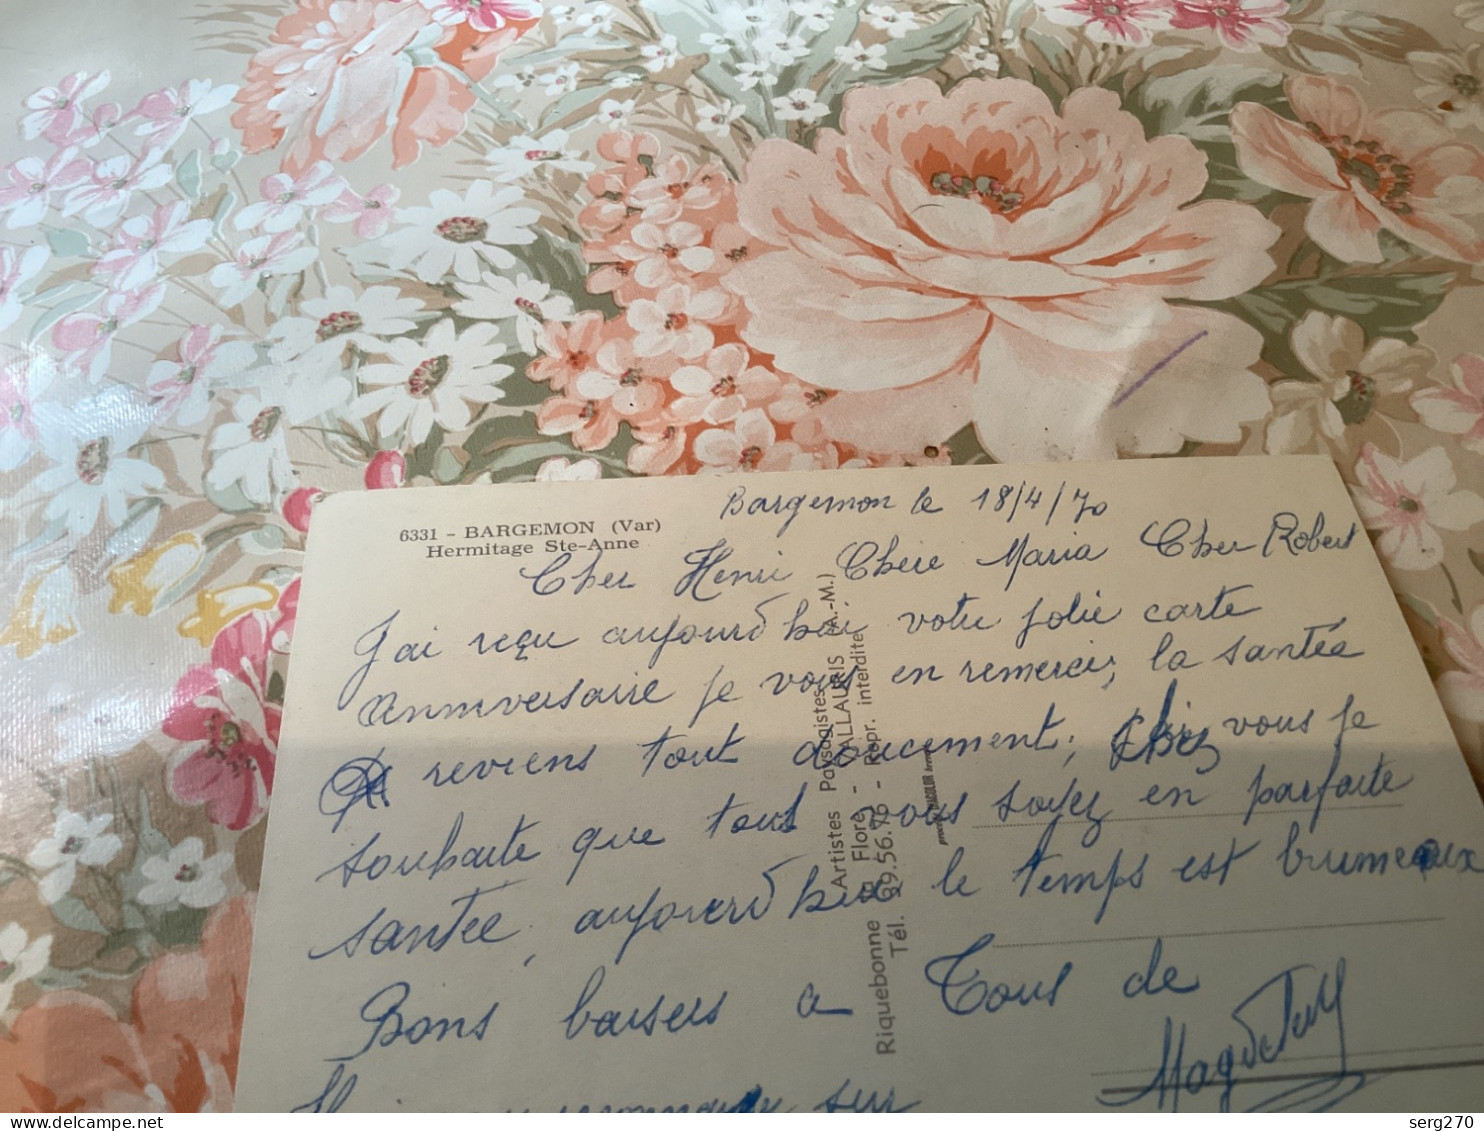 6331 - BARGEMON (Var)
Hermitage Ste-Anne
Bargemon le 18/4/70
Cher Henri Chère Maria Cher Robert
J'ai reçu aujourd hui votre jolie carte
Anniversaire je vous en remercie, la santée
reviens tout doucement, chez vous je
souhaite que tous vous soyez en parfaite
santée, aujourd hui le temps est brumeux
Bons baisers a Tous de
sur
Artistes Paysagistes
La Flore - VALLAURIS (A.-M.)
Riquebonne 39.56.76 - Repr. interdite
Tél.
serg270